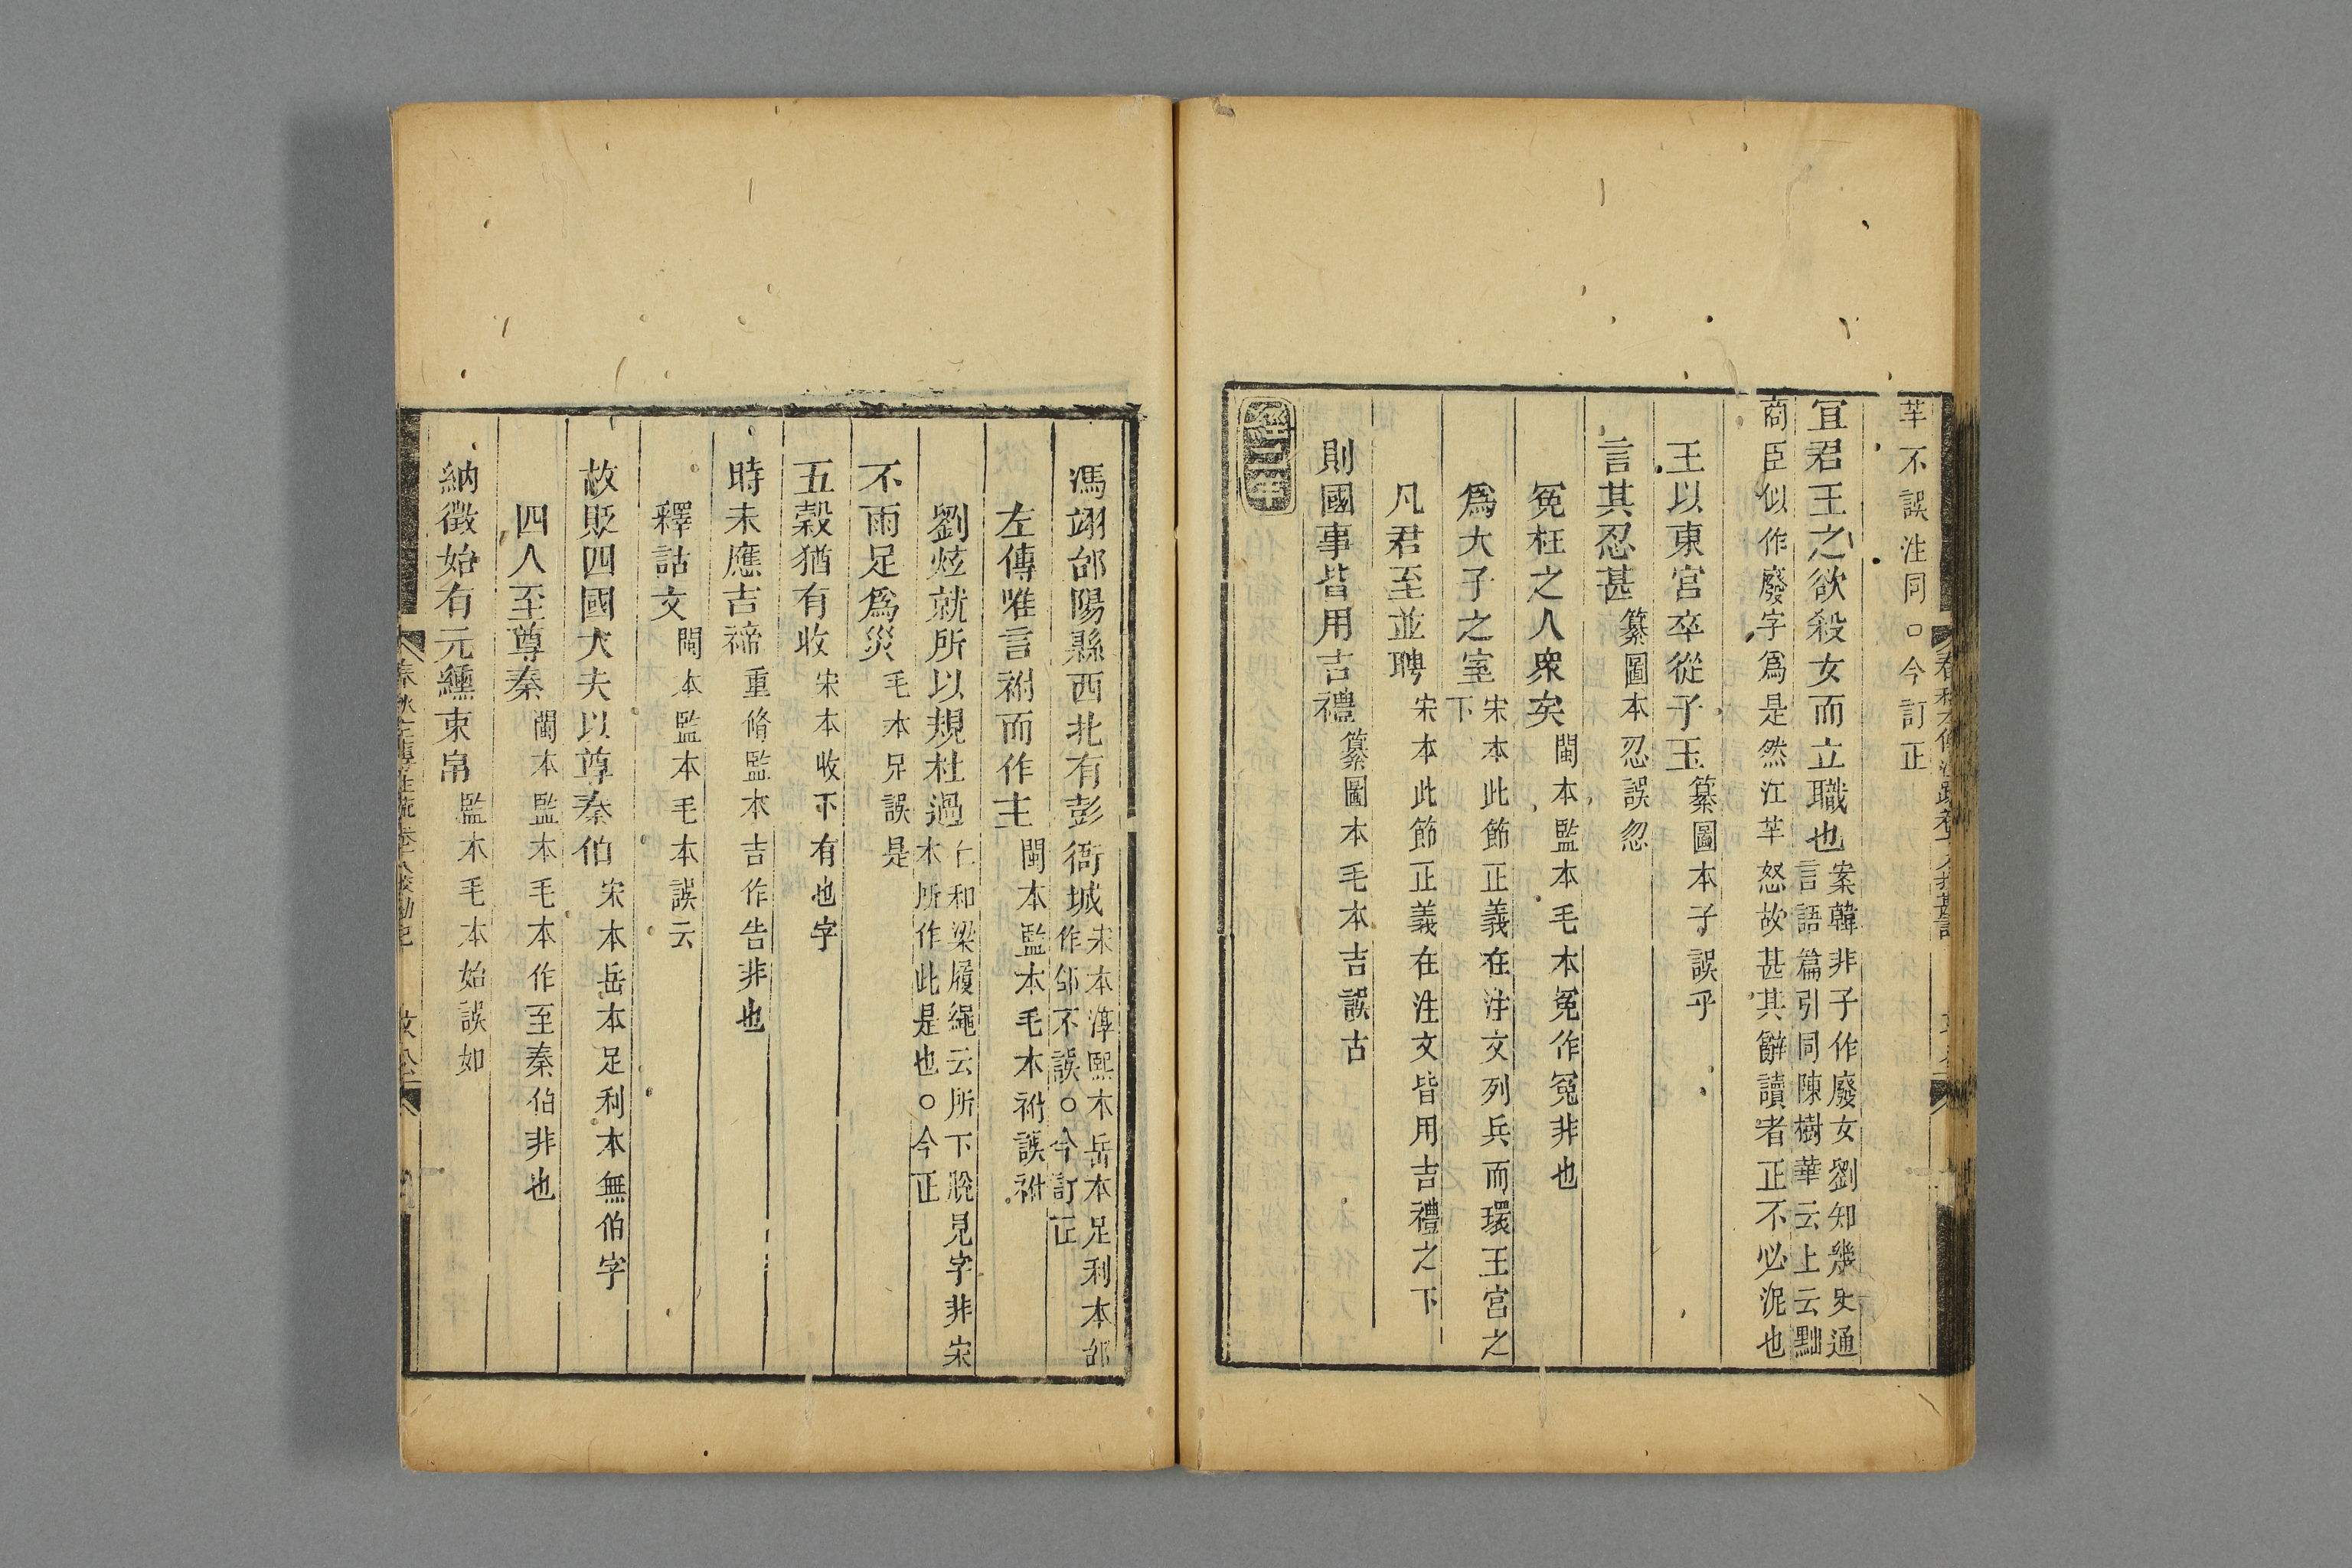 芊不誤注同○今訂正
宜君王之欲殺女而立職也案韓非子作廢女劉知幾史通
言語篇引同陳樹華云上云黜
商臣似作廢字爲是然江芊怒故甚其辭讀者正不必泥也
王以東宮卒從子玉纂圖本子誤乎
言其忍甚纂圖本忍誤忽
冤枉之人衆矣閩本監本毛本冤作寃非也
爲大子之室宋本此節正義在注文列兵而環王宮之
下
凡君至並聘宋本此節正義在注文皆用吉禮之下
則國事皆用吉禮纂圖本毛本吉誤古
經二年
馮翊郃陽縣西北有彭衙城宋本淳熙本岳本足利本郃
作郃不誤○今訂正
左傳唯言祔而作主閩本監本毛本祔誤祔
劉炫就所以規杜過仁和梁履繩云所下脫見字非宋
本所作此是也○今正
不雨足爲災毛本足誤是
五穀猶有收宋本收下有也字
時未應吉禘重脩監本吉作告非也
釋詁文閩本監本毛本誤云
故貶四國大夫以尊秦伯宋本岳本足利本無伯字
四人至尊秦閩本監本毛本作至秦伯非也
納徵始有元纁束帛監本毛本始誤如